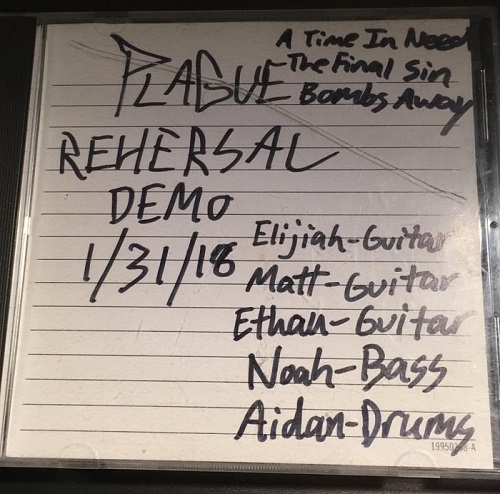 PLAGUE
A Time In Need
The Final Sin
Bombs Away
REHERSAL
DEMO
1/31/18
Elijiah-Guitar
Matt-Guitar
Ethan-Guitar
Noah-Bass
Aidan-Drums